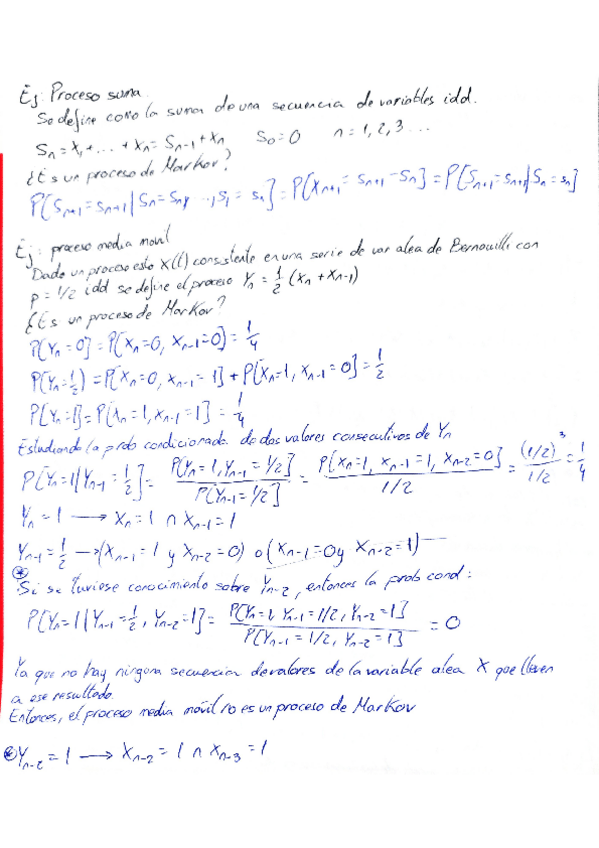 Ej: Proceso suma.
Se define como la suma de una secuencia de variables idd.
Sn = X1 + ... + Xn = Sn-1 + Xn   S0 = 0   n = 1, 2, 3 ...
¿Es un proceso de Markov?
P[Sn+1 = sn+1 | Sn = sn, ..., S1 = s1] = P[Xn+1 = sn+1 - sn] = P[Sn+1 = sn+1 | Sn = sn]
Ej: proceso media movil
Dado un proceso esto X(t) consistente en una serie de var alea de Bernouilli con
p = 1/2 idd se define el proceso Yn = 1/2 (Xn + Xn-1)
¿Es un proceso de Markov?
P[Yn = 0] = P[Xn = 0, Xn-1 = 0] = 1/4
P[Yn = 1/2] = P[Xn = 0, Xn-1 = 1] + P[Xn = 1, Xn-1 = 0] = 1/2
P[Yn = 1] = P[Xn = 1, Xn-1 = 1] = 1/4
Estudiando la prob condicionada de dos valores consecutivos de Yn
P[Yn = 1 | Yn-1 = 1/2] = P[Yn = 1, Yn-1 = 1/2] / P[Yn-1 = 1/2] = P[Xn = 1, Xn-1 = 1, Xn-2 = 0] / 1/2 = (1/2)^3 / 1/2 = 1/4
Yn = 1 → Xn = 1 ∩ Xn-1 = 1
Yn-1 = 1/2 → (Xn-1 = 1 y Xn-2 = 0) o (Xn-1 = 0 y Xn-2 = 1)
* Si se tuviese conocimiento sobre Yn-2, entonces la prob cond:
P[Yn = 1 | Yn-1 = 1/2, Yn-2 = 1] = P[Yn = 1, Yn-1 = 1/2, Yn-2 = 1] / P[Yn-1 = 1/2, Yn-2 = 1] = 0
Ya que no hay ninguna secuencia de valores de la variable alea X que lleven
a ese resultado.
Entonces, el proceso media móvil no es un proceso de Markov
* Yn-2 = 1 → Xn-2 = 1 ∩ Xn-3 = 1